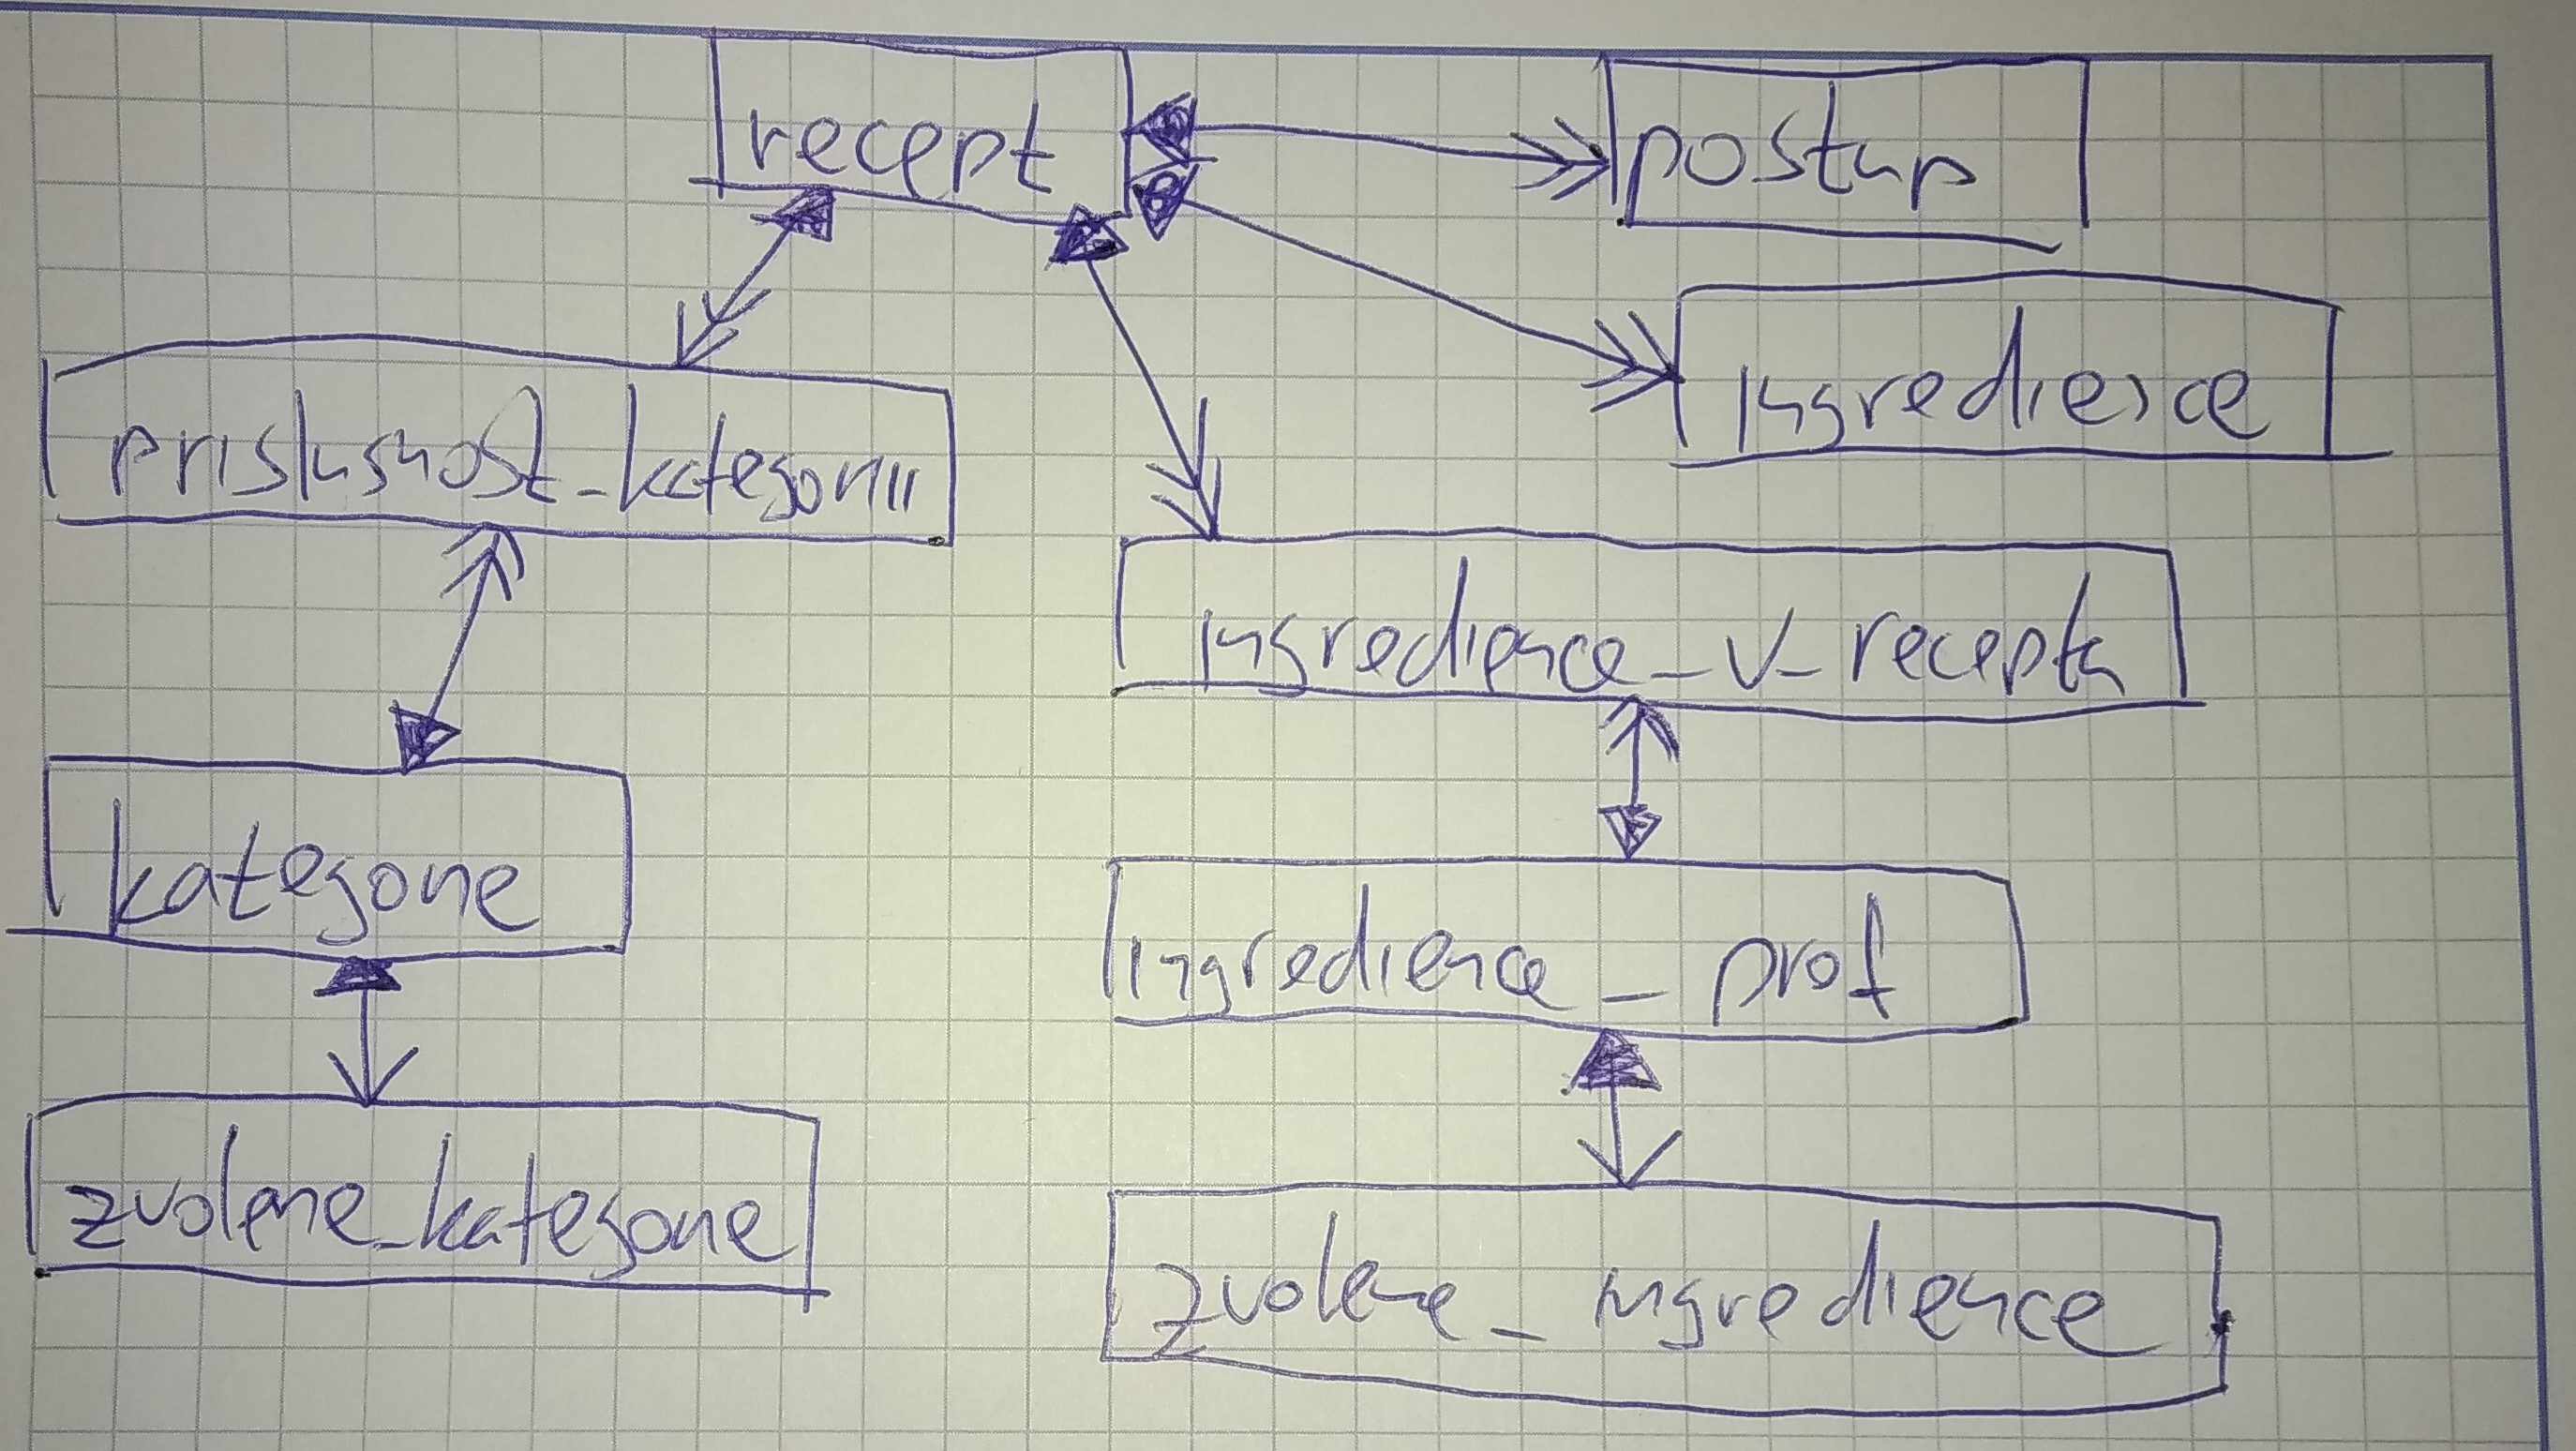 recept
postup
ingredience
prislusnost_kategorii
ingredience_v_receptu
kategorie
ingredience_prof
zvolene_kategorie
zvolene_ingredience